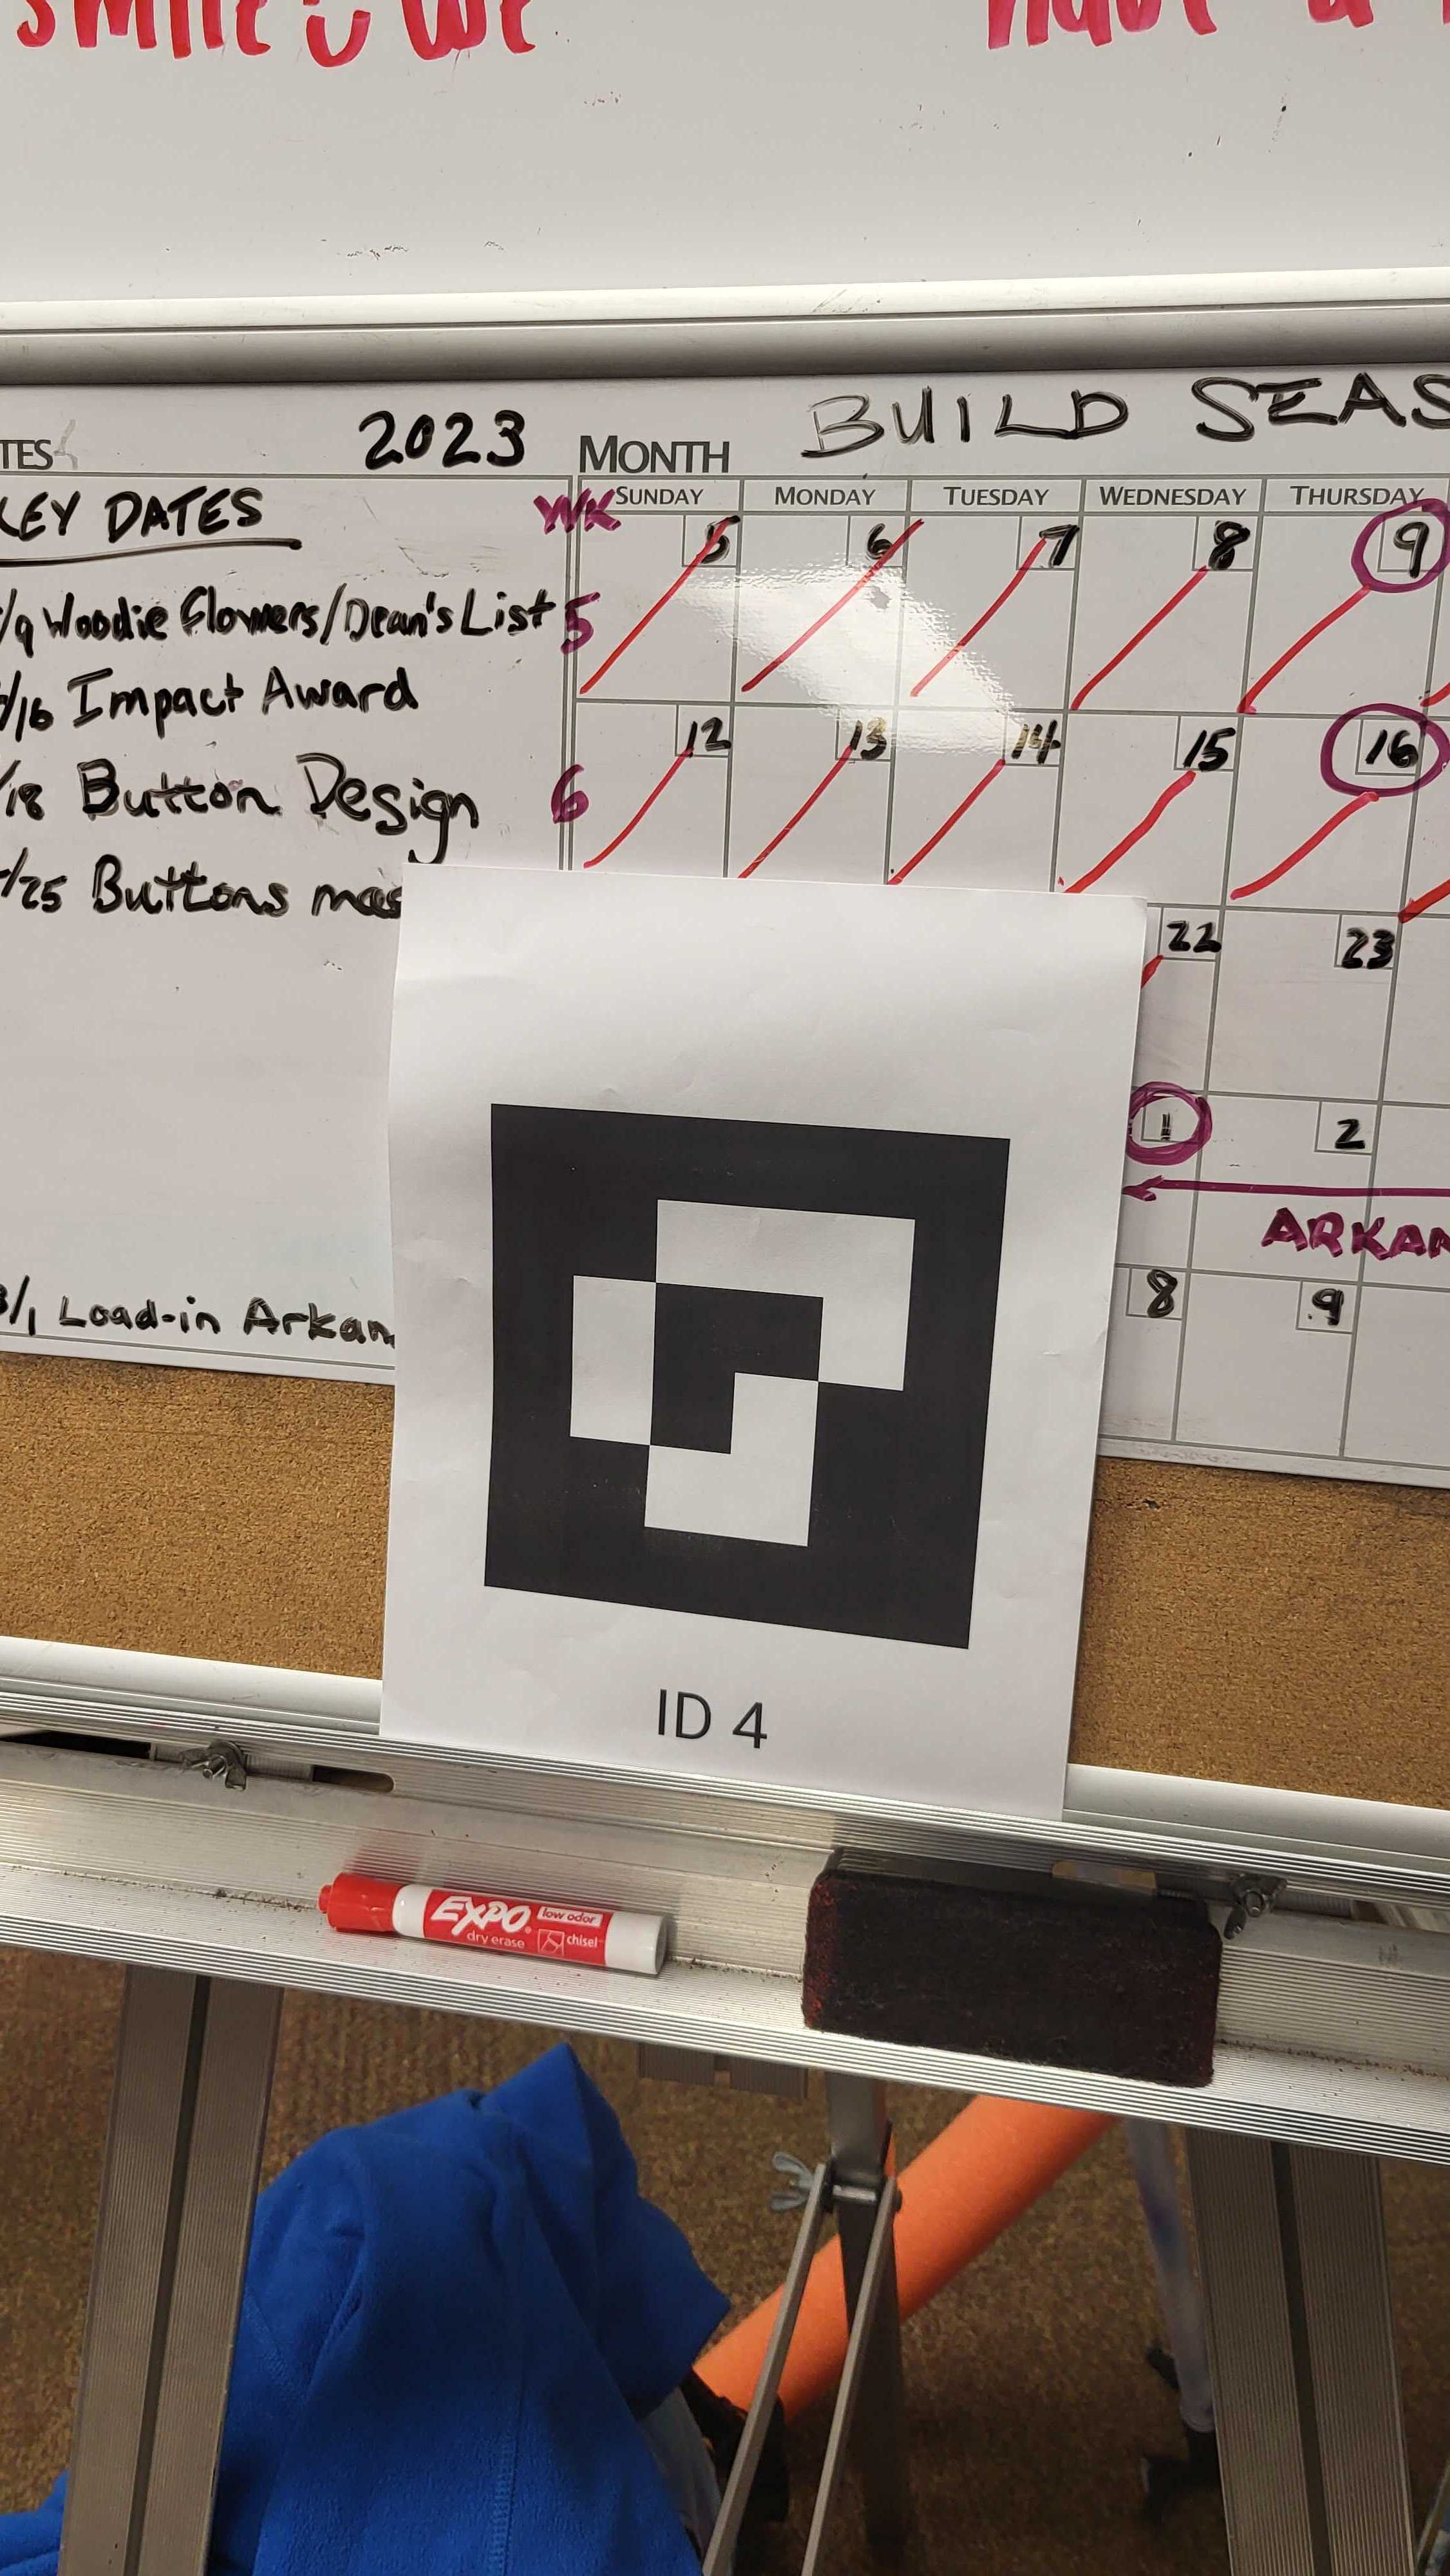 smile we
have a
TES
2023
MONTH
BUILD SEAS
KEY DATES
/9 Woodie Flowers/Dean's List
/16 Impact Award
/18 Button Design
/25 Buttons
3/1 Load-in Arkan
WK
SUNDAY MONDAY TUESDAY WEDNESDAY THURSDAY
5 6 7 8 9
5
12 13 14 15 16
6
22 23
1 2
ARKAN
8 9
ID 4
EXPO low odor
dry erase chisel